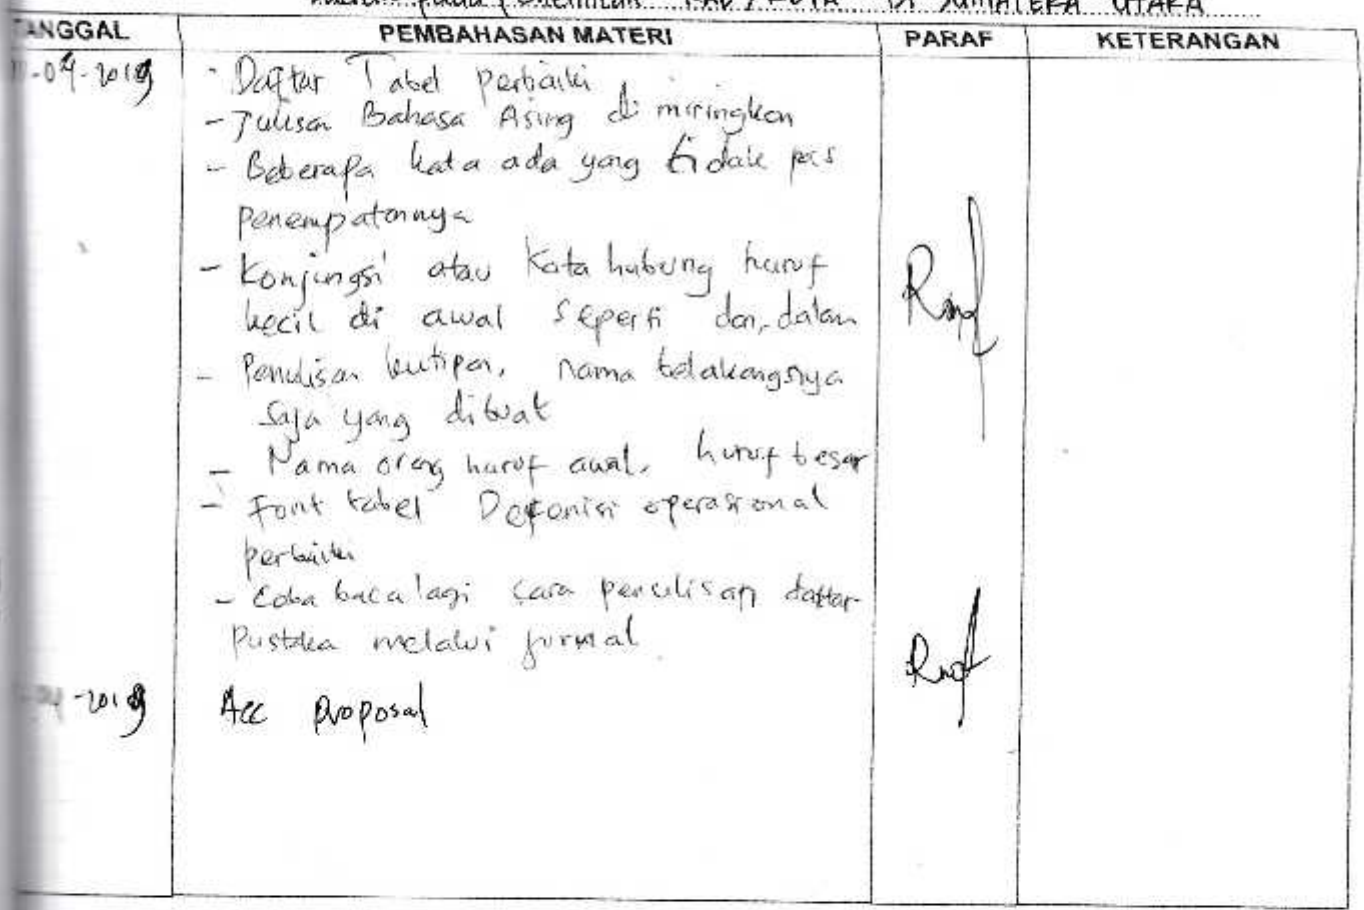 pada pemerintah KAB/KOTA DI SUMATERA UTARA
TANGGAL PEMBAHASAN MATERI PARAF KETERANGAN
-04-2019
- Daftar Tabel perbaiki
- Tulisan Bahasa Asing di miringkan
- Beberapa kata ada yang tidak pas
penempatannya
- Konjungsi atau kata hubung huruf
kecil di awal seperti dan, dalam
- Penulisan kutipan, nama belakangnya
saja yang dibuat
- Nama orang huruf awal, huruf besar
- Font tabel Defenisi operasional
perbaiki
- Coba baca lagi cara penulisan daftar
Pustaka melalui jurnal
-2019 Acc proposal